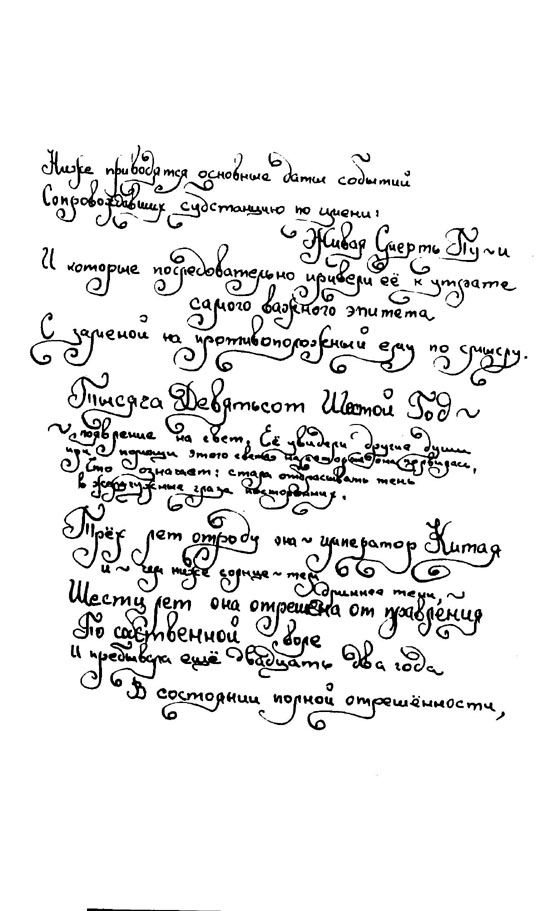 Ниже приводятся основные даты событий
Сопровождавших субстанцию по имени:
Живая Смерть Пу~и
И которые последовательно привели её к утрате
самого важного эпитета
С заменой на противоположный ему по смыслу.
Тысяча Девятьсот Шестой Год ~
~ появление на свет. Её увидели другие души
при помощи этого света на которой она
Это означает: стала отбрасывать тень
в жемчужные глаза посторонних.
Трёх лет отроду она ~ император Китая
и ~ чем ниже солнце ~ тем
длиннее тени, ~
Шести лет она отрешена от правления
По собственной воле
И пребывала ещё двадцать два года
В состоянии полной отрешённости,